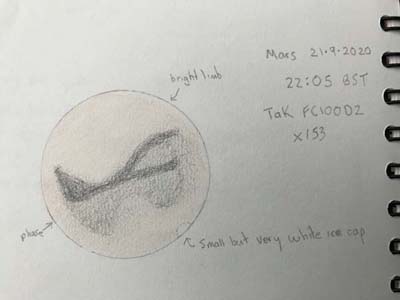 Mars 21.9.2020
22:05 BST
Tak FC100D2
x153
bright limb
phase
Small but very white ice cap